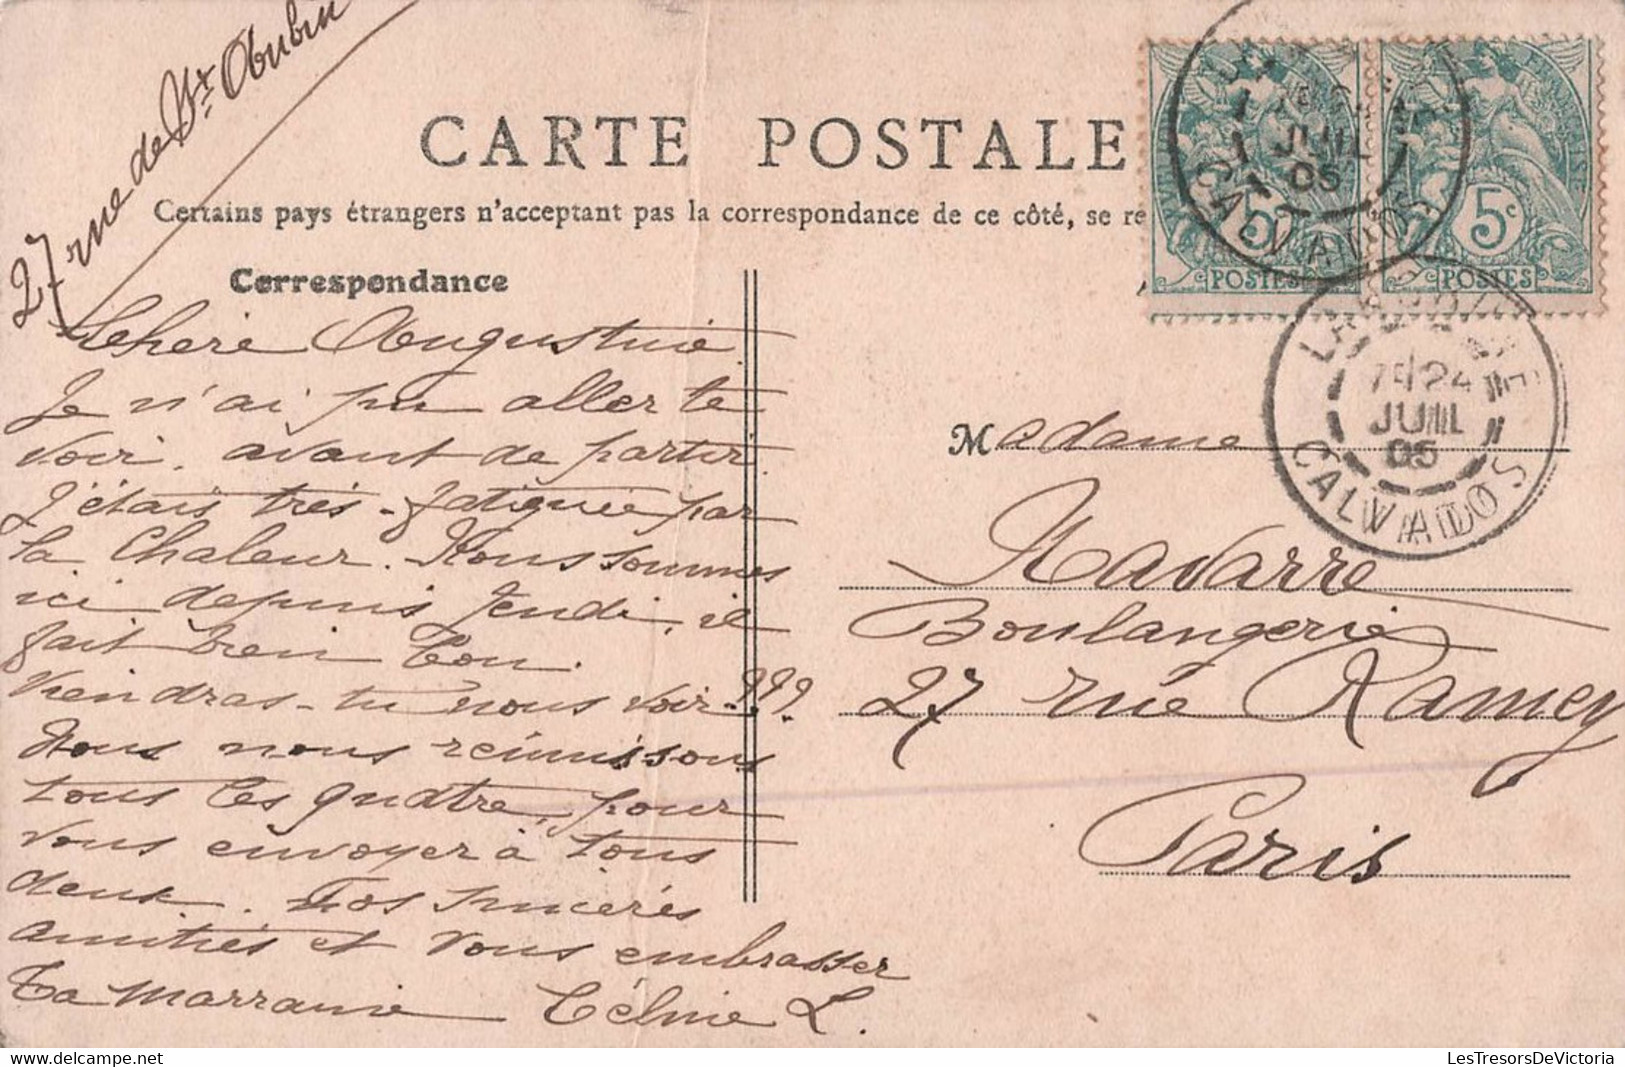 27 rue de St Aubin
CARTE POSTALE
Certains pays étrangers n'acceptent pas la correspondance de ce côté, se re
Correspondance
Ma chere Augustine
Je n'ai pu aller te
voir avant de partir.
J'étais très-fatiguée par
la Chaleur. Nous sommes
ici depuis Jeudi, il
fait bien bon.
Viendras-tu nous voir ???
Nous nous réunissons
tous les quatre, pour
vous envoyer à tous
deux. Nos sincéres
amitiés et vous embrasser
Ta Marraine Céline L.
Madame
Navarre
Boulangerie
27 rue Ramey
Paris
5c
POSTES
5c
POSTES
JUIL
05
CALVADOS
7E 24
JUIL
05
CALVADOS
LesTresorsDeVictoria